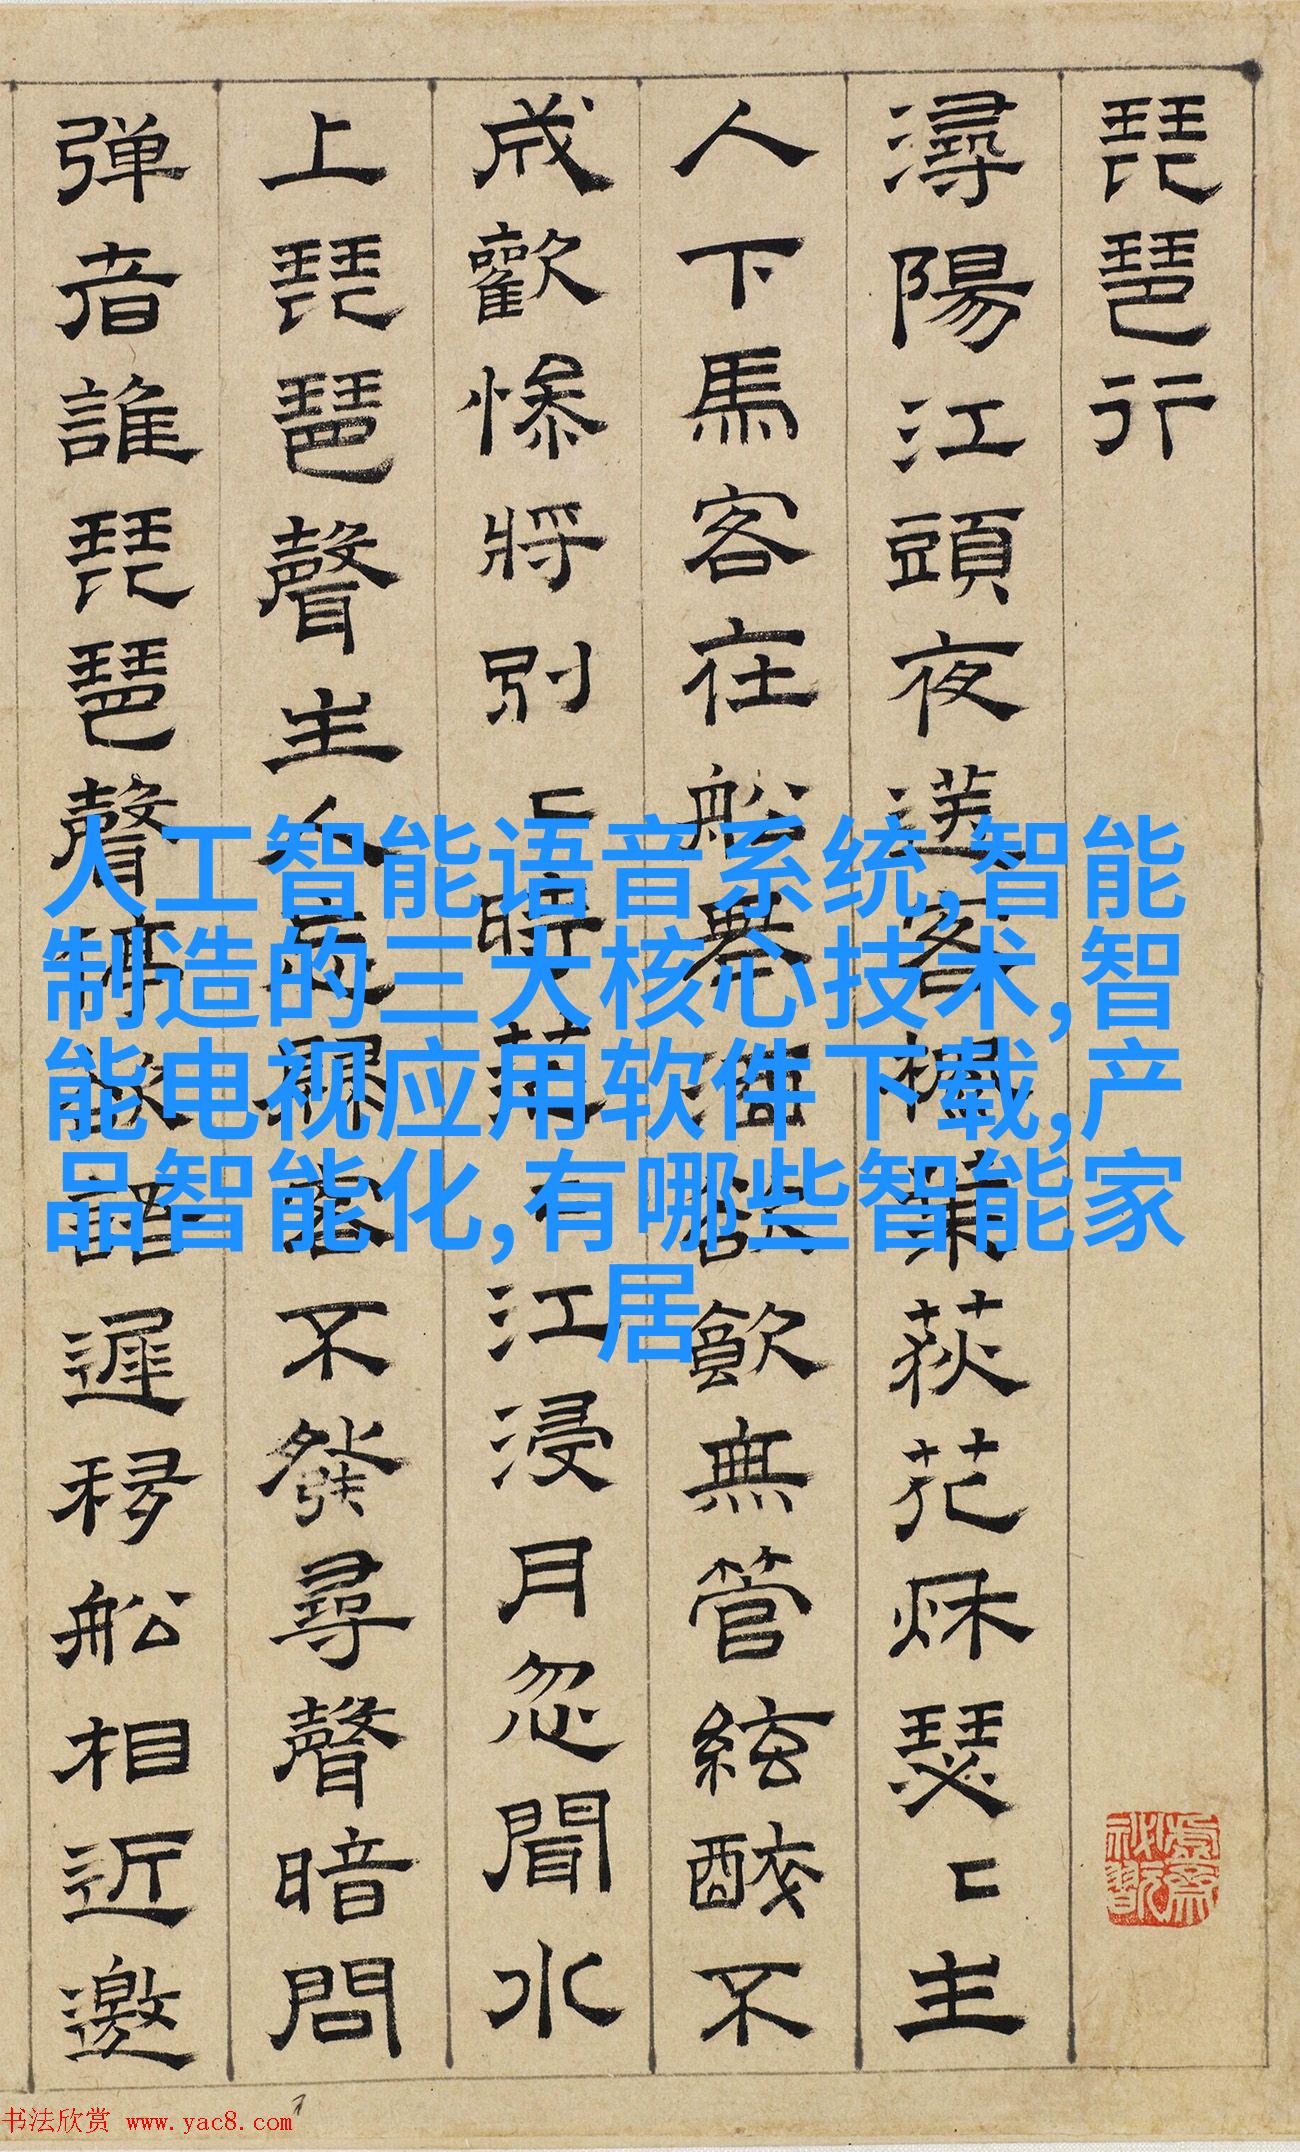 琵琶行
潯陽江頭夜送客楓葉荻花秌瑟〻主
人下馬客在船舉酒欲飲無管絃醉不
成歡慘將別〻時茫〻江浸月忽聞水
上琵琶聲主人忘歸客不發尋聲暗問
弹者誰琵琶聲停欲語遲移船相近邀
人工智能语音系统,智能
制造的三大核心技术,智
能电视应用软件下载,产
品智能化,有哪些智能家
居
书法欣赏 www.yac8.com